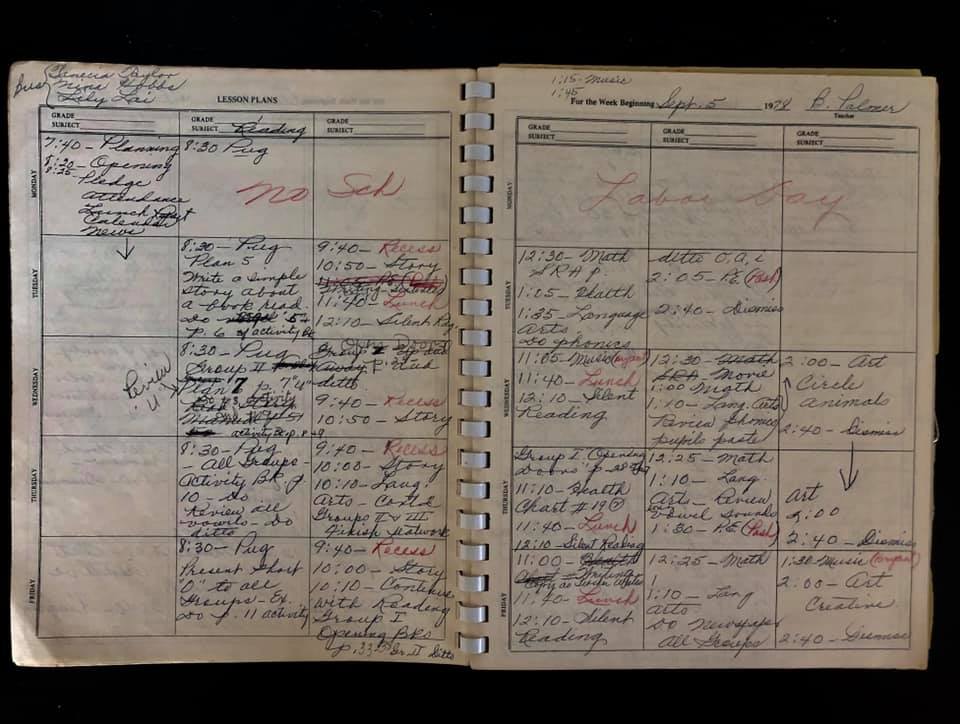 Bus
Taylor
Nina Hobbs
Lily Lai
LESSON PLANS
GRADE
SUBJECT
GRADE
SUBJECT Reading
GRADE
SUBJECT
MONDAY
7:40 - Planning
8:20 - Opening
8:25
Pledge
Attendance
Lunch
Calendar
News
8:30 Pug
No Sch
TUESDAY
8:30 - Pug
Plan 5
Write a simple
story about
a book read.
Do
p. 6 of activity Bk
9:40 - Recess
10:50 - Story
11:40 - Lunch
12:10 - Silent Rdg.
WEDNESDAY
Review
"U"
8:30 - Pug
Group II
Plan 7 p. 7 "u"
activity Bk p.
Group I
ditto
9:40 - Recess
10:50 - Story
THURSDAY
8:30 - Pug
- All Groups -
Activity Bk. p
10 - Do
Review all
vowels - Do
ditto
9:40 - Recess
10:00 - Story
10:10 - Lang.
Arts - Cont'd
Groups II & III
Finish seatwork
FRIDAY
8:30 - Pug
Present short
"O" to all
Groups - Ex.
Do p. 11 activity
9:40 - Recess
10:00 - Story
10:10 - Continue
with Reading
Group I
Opening Bks
p. 33 Gr. II Ditto
1:15 - Music
1:45
For the Week Beginning Sept. 5 1978 B. Palmer
Teacher
GRADE
SUBJECT
GRADE
SUBJECT
GRADE
SUBJECT
MONDAY
Labor Day
TUESDAY
12:30 - Math
SRA p.
1:05 - Health
1:35 - Language
Arts
Do phonics
ditto O, a, i
2:05 - P.E. (Pash)
2:40 - Dismiss
WEDNESDAY
11:05 - Music (Bryant)
11:40 - Lunch
12:10 - Silent
Reading
12:30 - Math
SRA - Movie
1:00 Math
1:10 - Lang. Arts
Review phonics
pupils paste
2:00 - Art
Circle
Animals
2:40 - Dismiss
THURSDAY
Group I Opening
Doors p. 28
11:10 - Health
Chart # 19
11:40 - Lunch
12:10 - Silent Reading
12:25 - Math
1:10 - Lang.
Arts - Review
vowel sounds
1:30 - P.E. (Pash)
Art
2:00
2:40 - Dismiss
FRIDAY
11:00 - Health
Writing
11:40 - Lunch
12:10 - Silent
Reading
12:25 - Math
1:10 - Lang
Arts
Do Newspaper
All Groups
1:30 - Music (Bryant)
2:00 - Art
Creative
2:40 - Dismiss